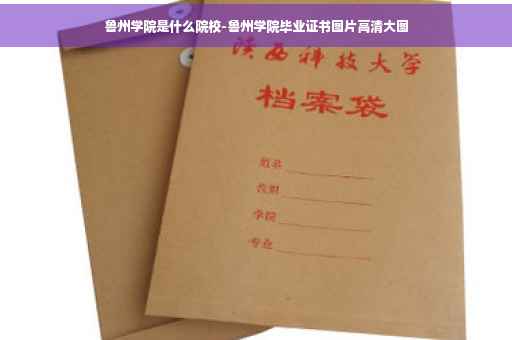 鲁州学院是什么院校-鲁州学院毕业证书图片高清大图
陕西科技大学
档案袋
姓名
性别
学院
专业